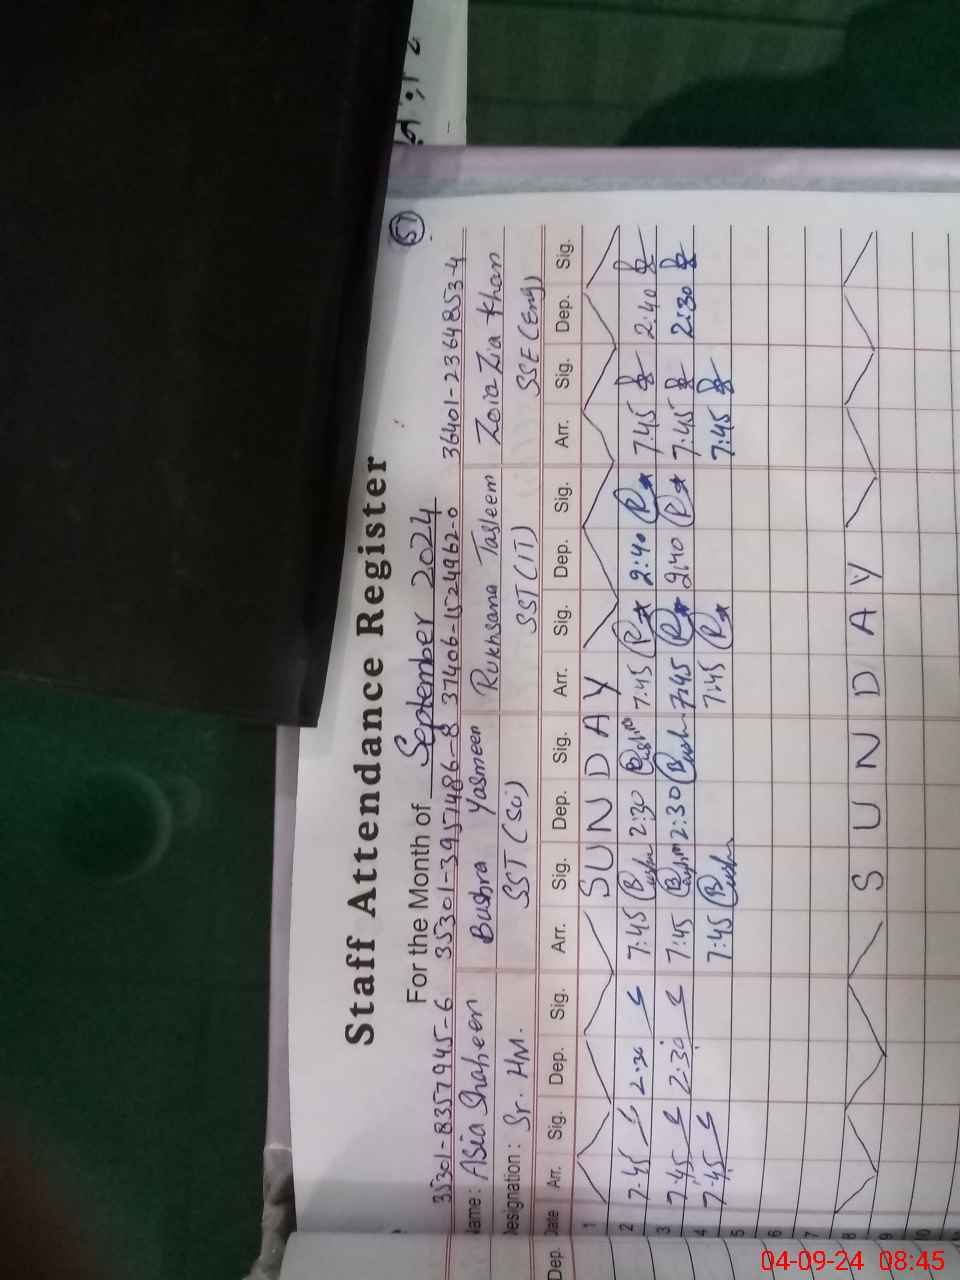 51
Staff Attendance Register
For the Month of September 2024
35301-8357945-6 35301-3957486-8 37406-1524962-0 36401-2364853-4
Name: Asia Shaheen Bushra Yasmeen Rukhsana Tasleem Zoia Zia Khan
Designation: Sr. HM. SST (Sci) SST (IT) SSE (Eng)
Dep. Date Arr. Sig. Dep. Sig. Arr. Sig. Dep. Sig. Arr. Sig. Dep. Sig. Arr. Sig. Dep. Sig.
1 SUNDAY
2 7:45 2:30 7:45 Bushra 2:30 Bushra 7:45 R 2:40 R 7:45 2:40
3 7:45 2:30 7:45 Bushra 2:30 Bushra 7:45 R 2:40 R 7:45 2:30
4 7:45 7:45 Bushra 7:45 R 7:45
5
6
7
8 SUNDAY
9
10
04-09-24 08:45